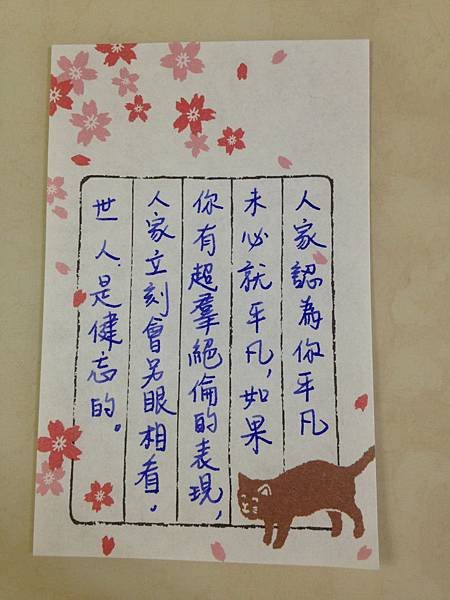 人家認為你平凡
未必就平凡，如果
你有超羣絕倫的表現，
人家立刻會另眼相看。
世人是健忘的。